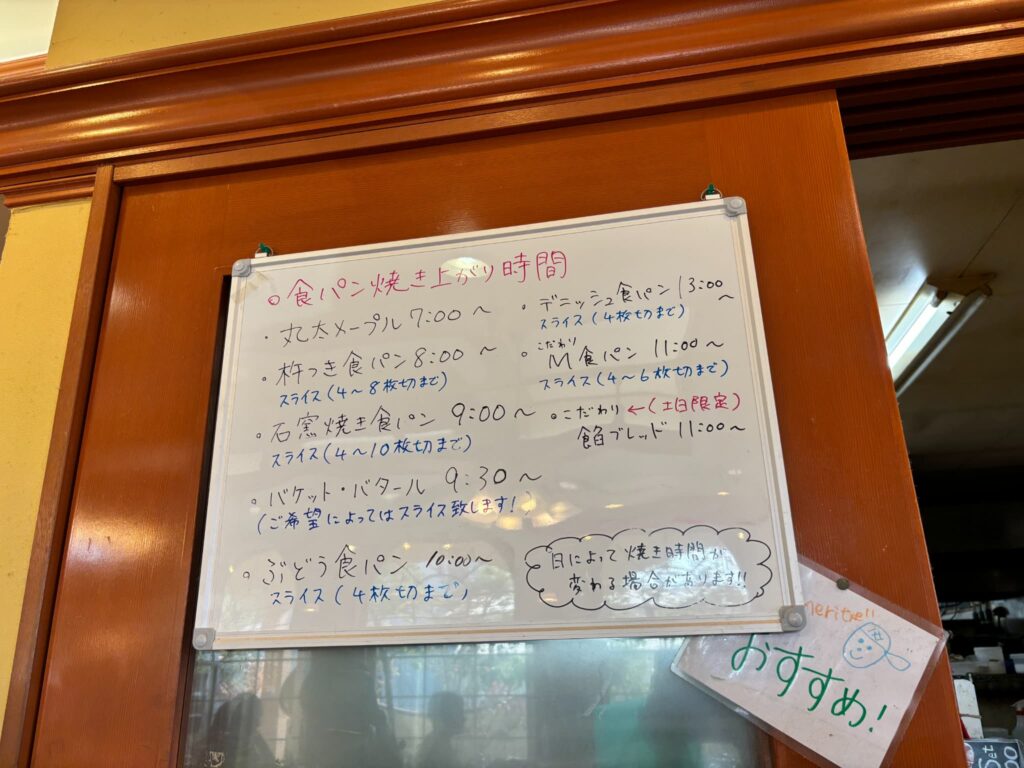 ○食パン焼き上がり時間
・丸太メープル 7:00 ~
・杵つき食パン 8:00 ~
スライス(4~8枚切まで)
・石窯焼き食パン 9:00~
スライス(4~10枚切まで)
・バケット・バタール 9:30~
(ご希望によってはスライス致します!)
・ぶどう食パン 10:00~
スライス(4枚切まで)
・デニッシュ食パン 13:00~
スライス(4枚切まで)
こだわり
・M食パン 11:00~
スライス(4~6枚切まで)
・こだわり ←(土日限定)
餡ブレッド 11:00~
日によって焼き時間が
変わる場合があります!!
おすすめ!
Set